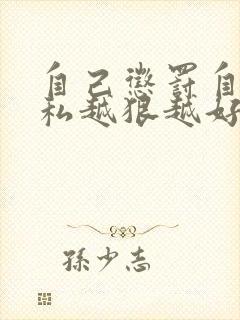 自己懲罰自
私越狠越好
孫少志